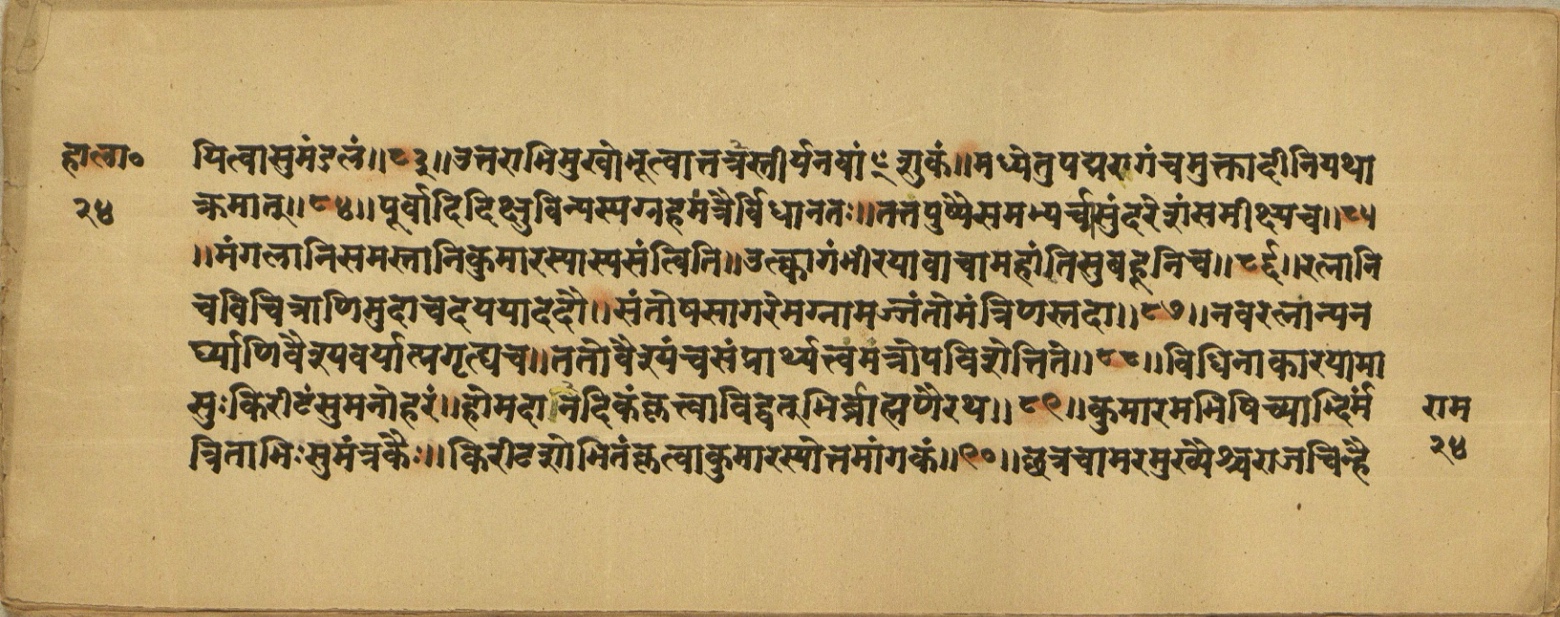 हाला०
२४
यित्वासुमंडलं॥८३॥उत्तराभिमुखोभूत्वातत्रस्तीर्यनवांशुकं॥मध्येतुपद्मरागंचमुक्तादीनियथा
क्रमात्॥८४॥पूर्वादिदिक्षुविन्यस्यग्रहमंत्रैर्विधानतः॥ततपुष्पैसमभ्यर्च्यसुंदरेशंसमीक्ष्यच॥८५
॥मंगलानिसमस्तानिकुमारस्यास्यसंत्विति॥उत्क्वागंभीरयावाचामहांतिसुबहूनिच॥८६॥रत्नानि
चविचित्राणिमुदाचदययाददौ॥संतोषसागरेमग्नामज्जंतोमंत्रिणस्तदा॥८७॥नवरत्नान्यन
र्घ्याणिवैश्यवर्यात्प्रगृत्द्यच॥ततोवैश्यंचसंप्रार्थ्यत्त्वमत्रोपविशेत्तिते॥८८॥विधिनाकारयामा
सुःकिरीटंसुमनोहरं॥होमदानादिकंकृत्त्वाविद्वत्भिर्ब्राह्मणैरथ॥८९॥कुमारमभिषिच्याद्भिर्मं
त्रिताभिःसुमंत्रकैः॥किरीटशोभितंकृत्वाकुमारस्योत्तमांगकं॥९०॥छत्रचामरमुख्यैश्चराजचिन्है
राम
२४